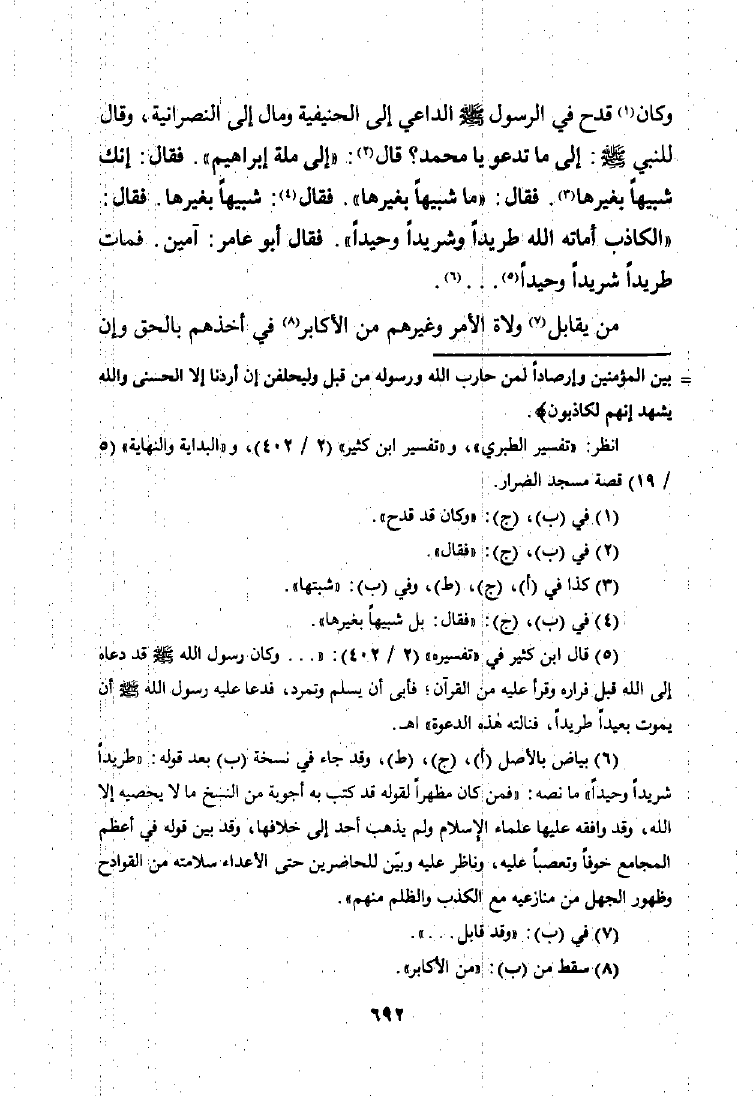 وكان(١) قدح في الرسول ﷺ الداعي إلى الحنيفية ومال إلى النصرانية، وقال
للنبي ﷺ: إلى ما تدعو يا محمد؟ قال(٢): «إلى ملة إبراهيم». فقال: إنك
شبيهاً بغيرها(٣). فقال: «ما شبيهاً بغيرها». فقال(٤): شبيهاً بغيرها. فقال:
«الكاذب أماته الله طريداً وشريداً وحيداً». فقال أبو عامر: آمين. فمات
طريداً شريداً وحيداً(٥)...(٦).
من يقابل(٧) ولاة الأمر وغيرهم من الأكابر(٨) في أخذهم بالحق وإن
= بين المؤمنين وإرصاداً لمن حارب الله ورسوله من قبل وليحلفن إن أردنا إلا الحسنى والله
يشهد إنهم لكاذبون﴾.
انظر: «تفسير الطبري»، و«تفسير ابن كثير» (٢ / ٤٠٢)، و«البداية والنهاية» (٥
/ ١٩) قصة مسجد الضرار.
(١) في (ب)، (ج): «وكان قد قدح».
(٢) في (ب)، (ج): «فقال».
(٣) كذا في (أ)، (ج)، (ط)، وفي (ب): «شبتها».
(٤) في (ب)، (ج): «فقال: بل شبيهاً بغيرها».
(٥) قال ابن كثير في «تفسيره» (٢ / ٤٠٢): «... وكان رسول الله ﷺ قد دعاه
إلى الله قبل فراره وقرأ عليه من القرآن؛ فأبى أن يسلم وتمرد، فدعا عليه رسول الله ﷺ أن
يموت بعيداً طريداً، فنالته هذه الدعوة» اهـ.
(٦) بياض بالأصل (أ)، (ج)، (ط)، وقد جاء في نسخة (ب) بعد قوله: «طريداً
شريداً وحيداً» ما نصه: «فمن كان مظهراً لقوله قد كتب به أجوبة من النسخ ما لا يحصيه إلا
الله، وقد وافقه عليها علماء الإسلام ولم يذهب أحد إلى خلافها، وقد بين قوله في أعظم
المجامع خوفاً وتعصباً عليه، وناظر عليه وبيّن للحاضرين حتى الأعداء سلامته من القوادح
وظهور الجهل من منازعيه مع الكذب والظلم منهم».
(٧) في (ب): «وقد قابل...».
(٨) سقط من (ب): «من الأكابر».
٦٩٢